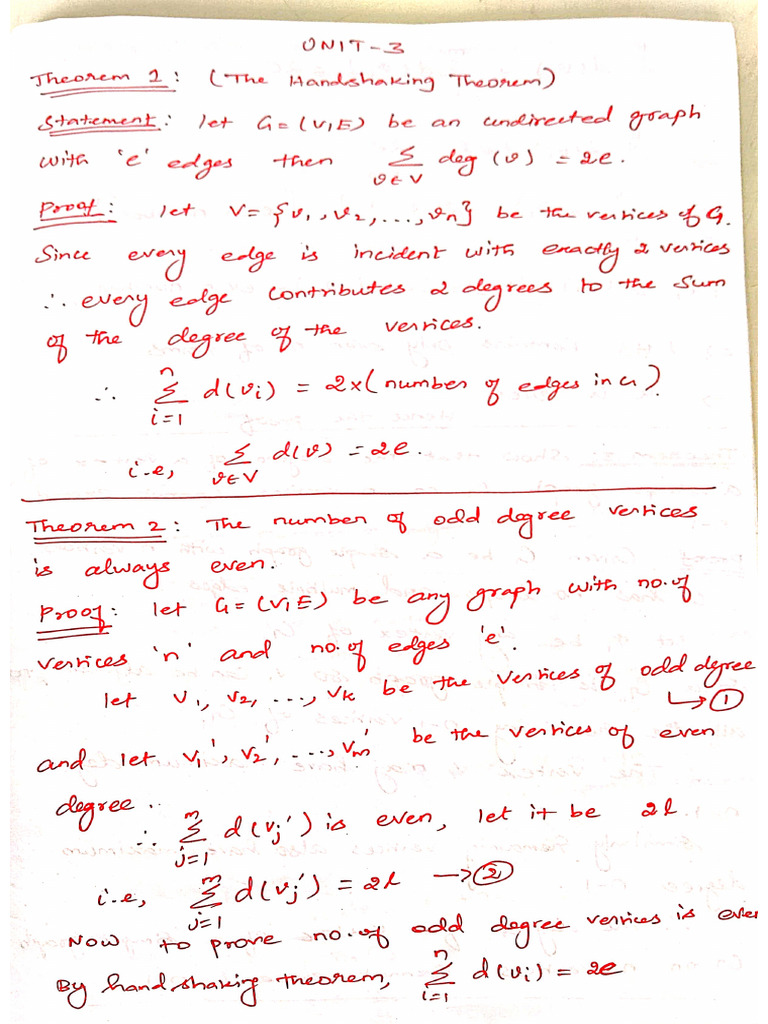 UNIT-3
Theorem 1: (The Handshaking Theorem)
Statement: let G=(V,E) be an undirected graph
with 'e' edges then ∑_{v∈V} deg (v) = 2e.
Proof: let V= {v₁, v₂, ..., vₙ} be the vertices of G.
Since every edge is incident with exactly 2 vertices
∴ every edge contributes 2 degrees to the sum
of the degree of the vertices.
∴ ∑_{i=1}^{n} d(vᵢ) = 2×(number of edges in G)
i.e, ∑_{v∈V} d(v) = 2e.
Theorem 2: The number of odd degree vertices
is always even.
Proof: let G=(V,E) be any graph with no. of
vertices 'n' and no. of edges 'e'.
let v₁, v₂, ..., vₖ be the vertices of odd degree
↳ ①
and let v₁', v₂', ..., vₘ' be the vertices of even
degree..
∴ ∑_{j=1}^{m} d(vⱼ') is even, let it be 2l
i.e, ∑_{j=1}^{m} d(vⱼ') = 2l → ②
Now to prove no. of odd degree vertices is even
By handshaking theorem, ∑_{i=1}^{n} d(vᵢ) = 2e